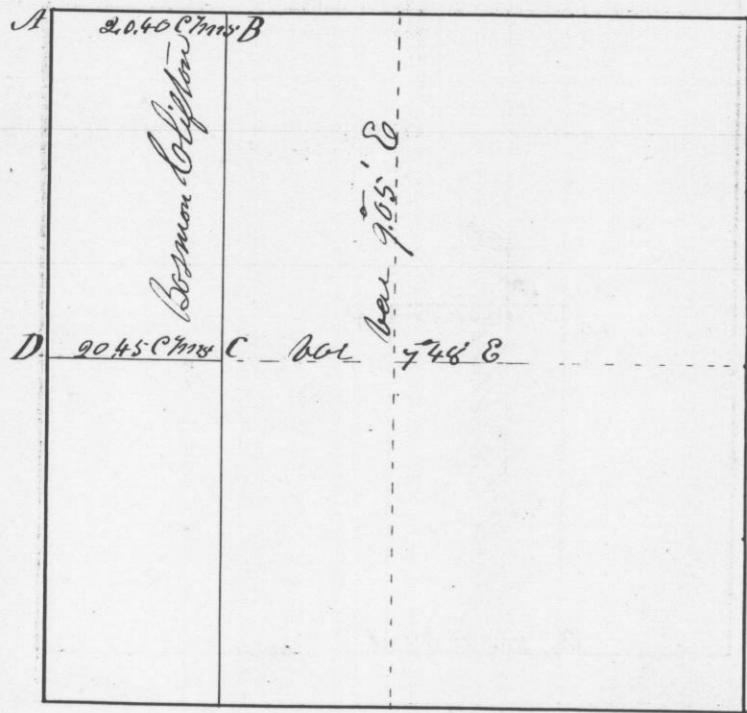 A 20.40 Chns B
Bosmon Clifton
var 9°05' E
D 20.45 Chns C var 7°48' E